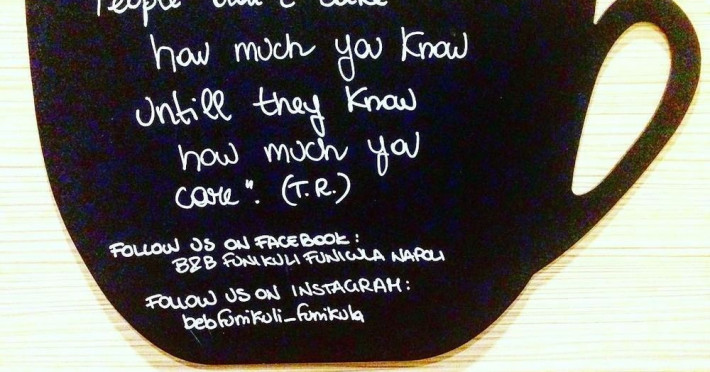 People don't care
how much you know
untill they know
how much you
care". (T.R.)
FOLLOW US ON FACEBOOK:
B&B FUNIKULI FUNICULA NAPOLI
FOLLOW US ON INSTAGRAM:
bebfunikuli_funikula